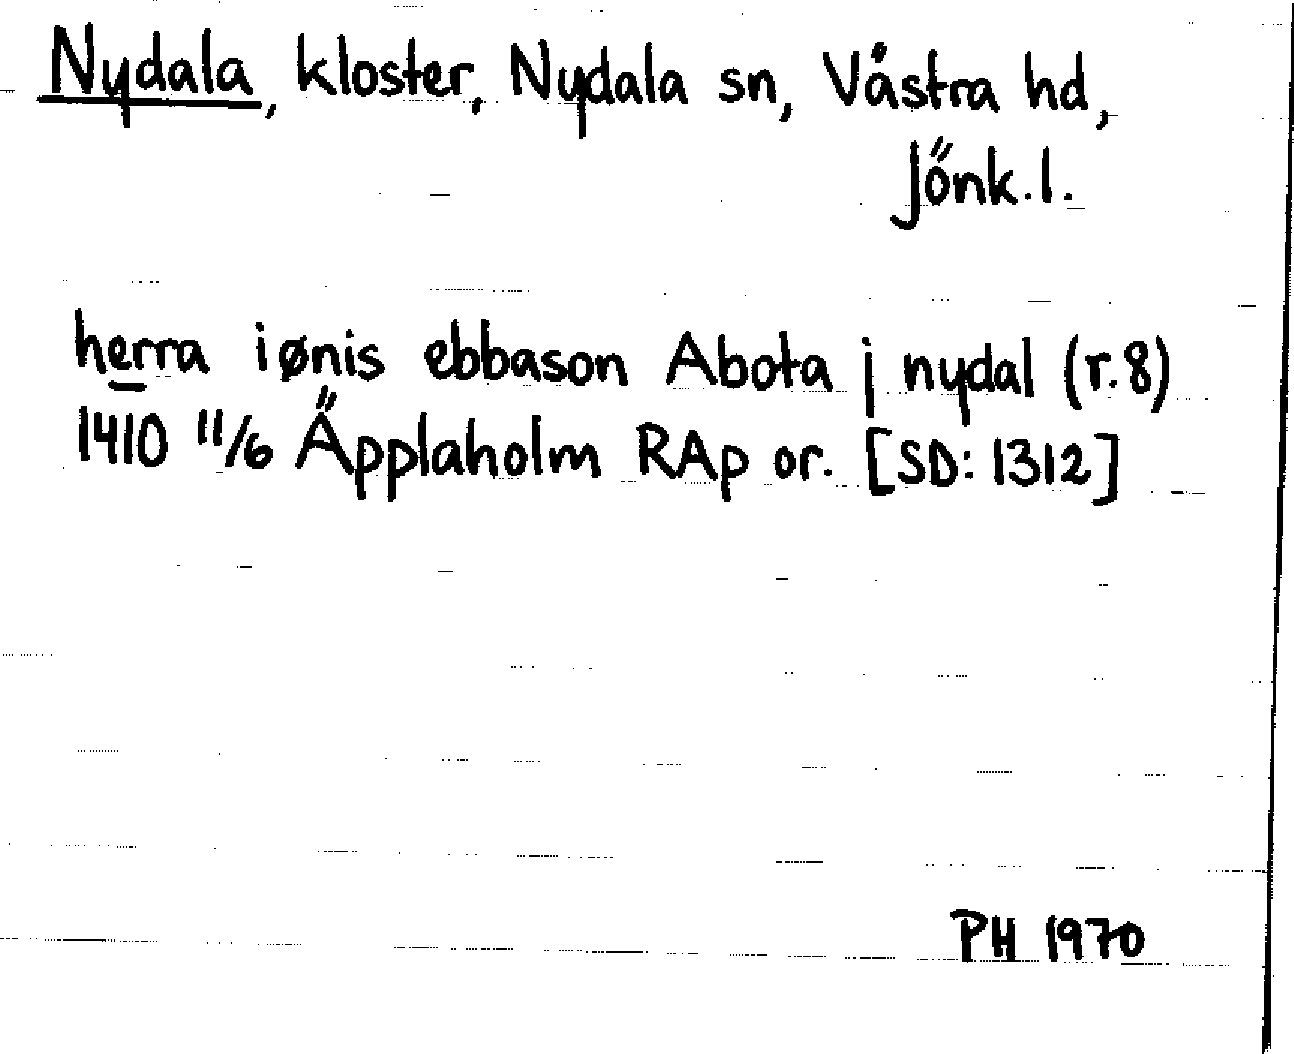 Nydala, kloster, Nydala sn, Västra hd,
Jönk. l.
herra iønis ebbason Abota j nydal (r. 8)
1410 11/6 Äpplaholm RAp or. [SD: 1312]
PH 1970